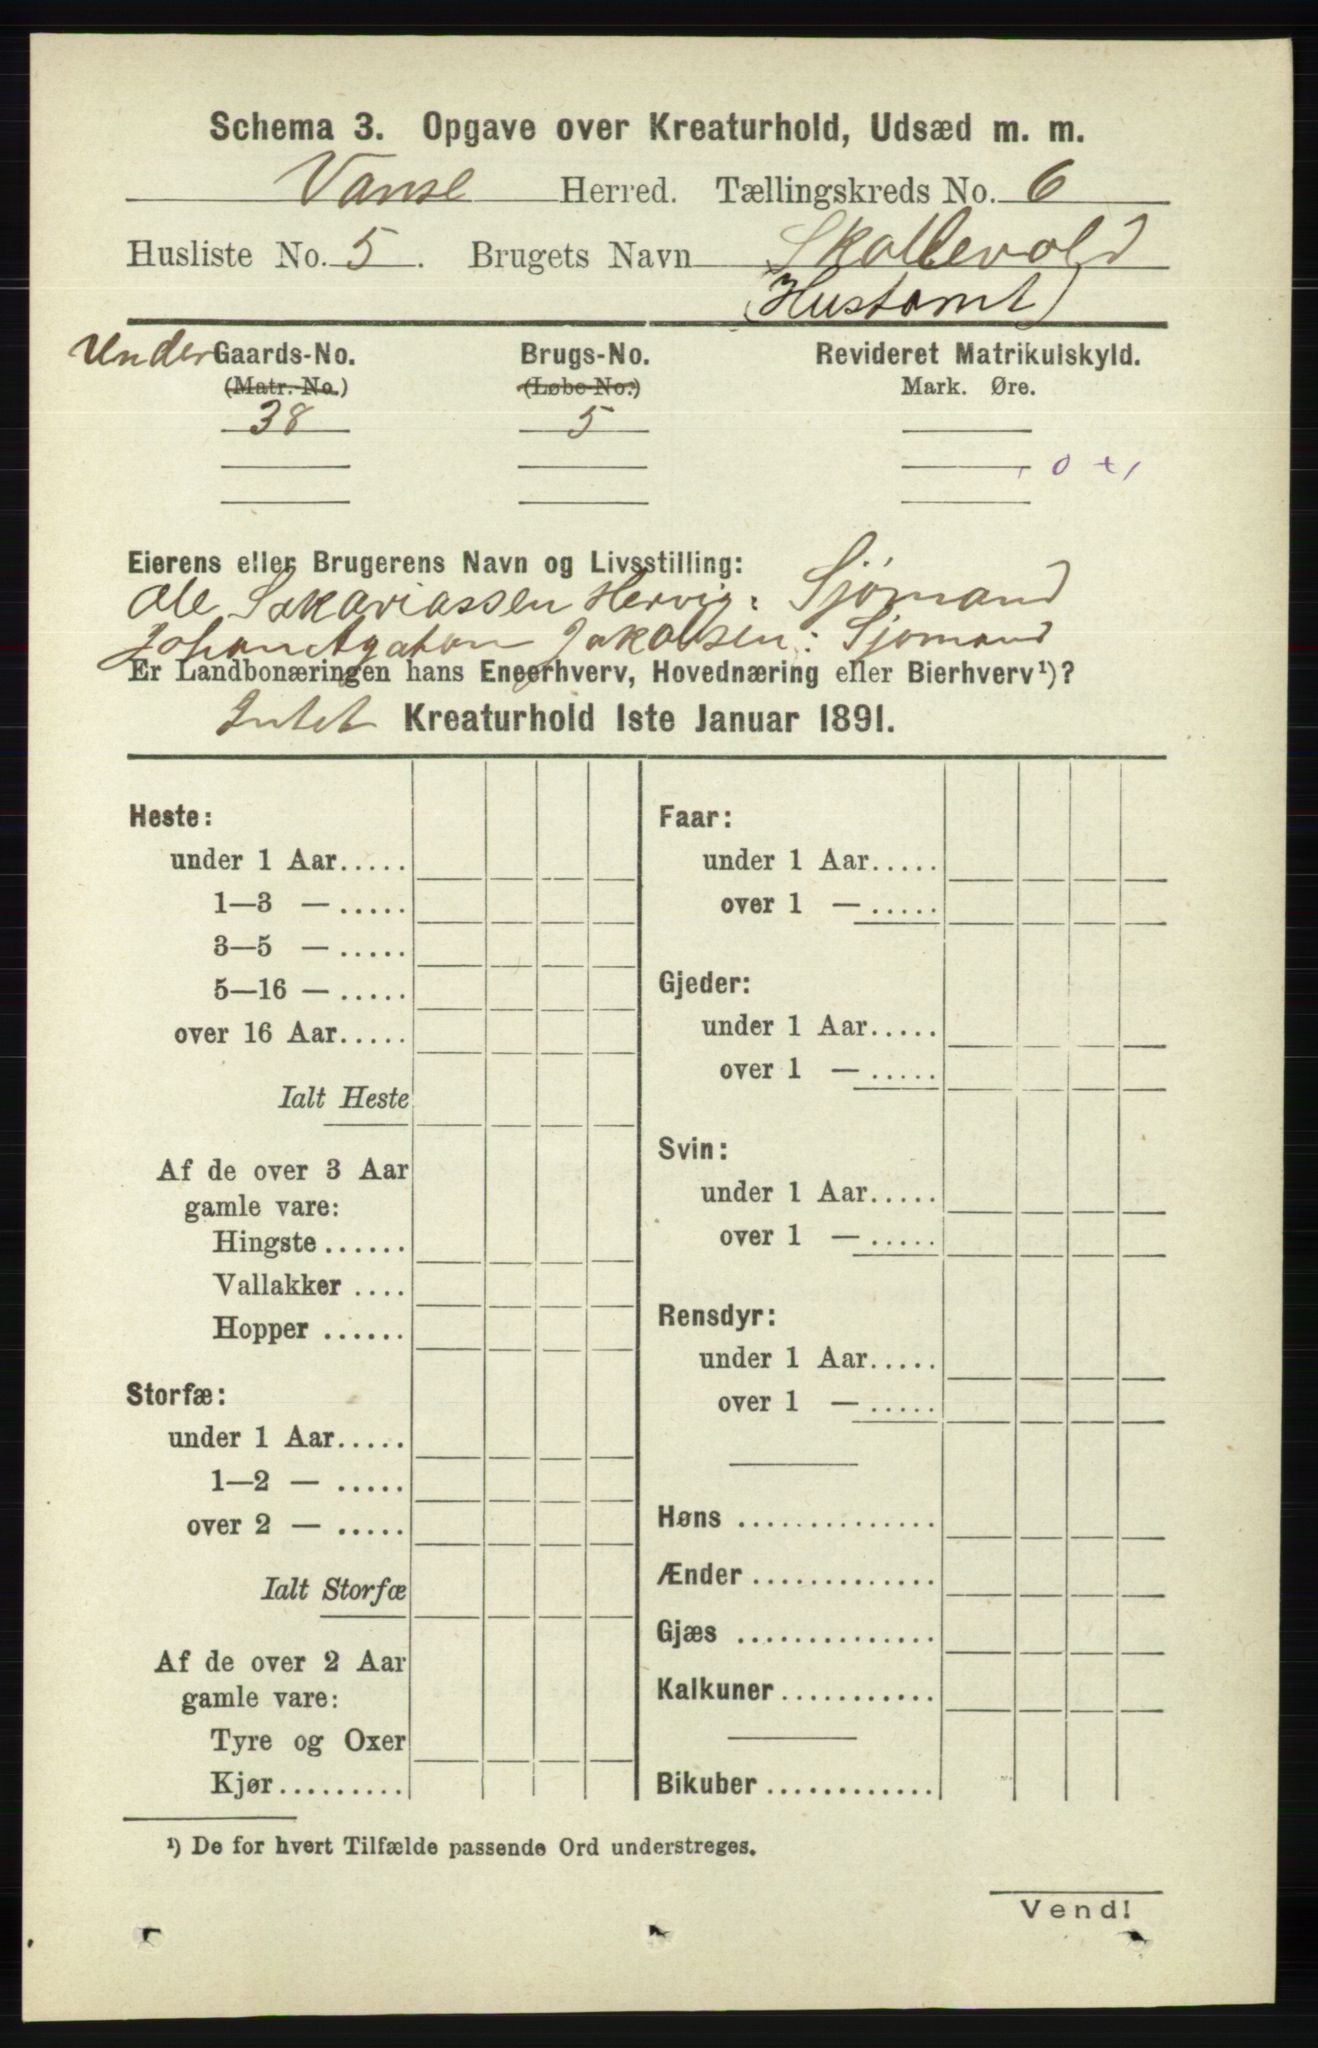 Schema 3. Opgave over Kreaturhold, Udsæd m. m.
Vanse Herred. Tællingskreds No. 6
Husliste No. 5. Brugets Navn Skollevold
(Hustomt)
Under Gaards-No. Brugs-No. Revideret Matrikulskyld.
(Matr.-No.) (Løbe-No.) Mark. Øre.
38 5
0 +
Eierens eller Brugerens Navn og Livsstilling:
Ole Sakariassen Hervig: Sjømand
Johan Agaton Jakobsen: Sjømand
Er Landbonæringen hans Eneerhverv, Hovednæring eller Bierhverv¹)?
Intet Kreaturhold 1ste Januar 1891.
Heste:
under 1 Aar.....
1—3 — .....
3—5 — .....
5—16 — .....
over 16 Aar.....
Ialt Heste
Af de over 3 Aar
gamle vare:
Hingste ......
Vallakker ....
Hopper ......
Storfæ:
under 1 Aar.....
1—2 — .....
over 2 — .....
Ialt Storfæ
Af de over 2 Aar
gamle vare:
Tyre og Oxer
Kjør.........
Faar:
under 1 Aar.....
over 1 — .....
Gjeder:
under 1 Aar.....
over 1 — .....
Svin:
under 1 Aar.....
over 1 — .....
Rensdyr:
under 1 Aar.....
over 1 — .....
Høns ..............
Ænder .............
Gjæs ..............
Kalkuner...........
Bikuber ............
¹) De for hvert Tilfælde passende Ord understreges.
Vend!